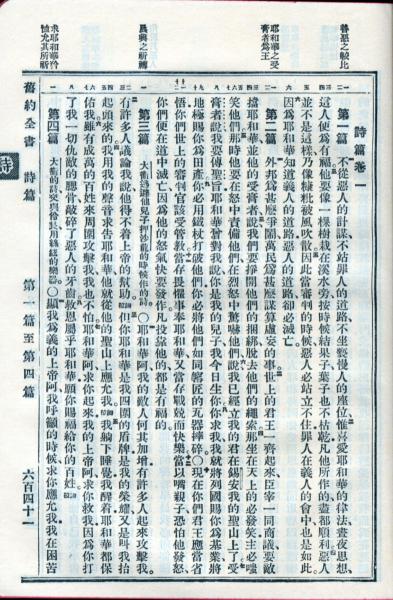 善惡之較比
耶和華之受
膏者爲王
晨興之祈禱
求耶和華
恤允其所祈
詩篇卷一
第一篇 不從惡人的計謀不站罪人的道路不坐褻慢人的座位惟喜愛耶和華的律法晝夜思想、
這人便爲有福他要像一棵樹栽在溪水旁按時候結果子葉子也不枯乾凡他所作的盡都順利惡人
並不是這樣乃像糠粃被風吹散因此當審判的時候惡人必站立不住罪人在義人的會中也是如此。
因爲耶和華知道義人的道路惡人的道路卻必滅亡。
第二篇 外邦爲甚麼爭鬧萬民爲甚麼謀算虛妄的事世上的君王一齊起來臣宰一同商議要敵
擋耶和華並他的受膏者說我們要掙開他們的捆綁脫去他們的繩索那坐在天上的必發笑主必嗤
笑他們那時他要在怒中責備他們在烈怒中驚嚇他們說我已經立我的君在錫安我的聖山上了受
膏者說我要傳聖旨耶和華曾對我說你是我的兒子我今日生你你求我我就將列國賜你爲基業將
地極賜你爲田產你必用鐵杖打破他們你必將他們如同窰匠的瓦器摔碎○現在你們君王應當省
悟你們世上的審判官該受管教當存畏懼事奉耶和華又當存戰兢而快樂當以嘴親子恐怕他發怒、
你們便在道中滅亡因爲他的怒氣快要發作凡投靠他的都是有福的
第三篇 大衛逃避他兒子押沙龍的時候作的詩○耶和華阿我的敵人何其加增有許多人起來攻擊我。
有許多人議論我說他得不着上帝的幫助。細拉但你耶和華是我四圍的盾牌是我的榮耀又是叫我抬
起頭來的我用我的聲音求告耶和華他就從他的聖山上應允我。細拉我躺下睡覺我醒着耶和華都保
佑我雖有成萬的百姓來周圍攻擊我我也不怕耶和華阿求你起來我的上帝阿求你救我因爲你打
了我一切仇敵的腮骨敲碎了惡人的牙齒救恩屬乎耶和華願你賜福給你的百姓。細拉
第四篇 大衛的詩交與伶長用絲弦的樂器○顯我爲義的上帝阿我呼籲的時候求你應允我我在困苦
舊約全書 詩篇 第一篇至第四篇 六百四十一
詩